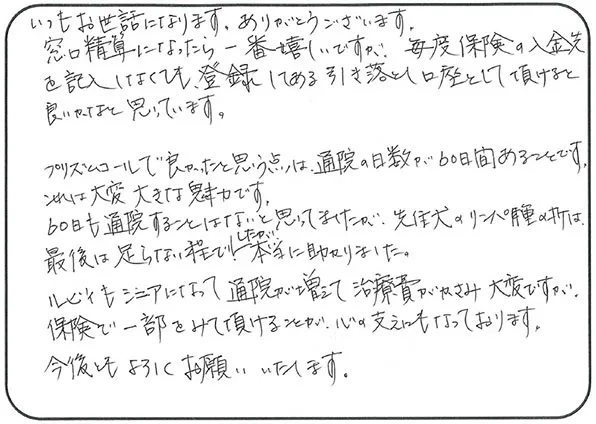 いつもお世話になります。ありがとうございます。
窓口精算になったら一番嬉しいですが、毎度保険の入金先
を記入しなくても、登録してある引き落とし口座として頂けると
良いかなと思っています。
プリズムコールで良かったと思う点は、通院の日数が60日間あることです。
これは大変大きな魅力です。
60日も通院することはないと思ってましたが、先住犬のリンパ腫の折は、
最後は足らない程でしたが、本当に助かりました。
ルビィもシニアになって通院が増えて治療費がかさみ大変ですが、
保険で一部をみて頂けることが、心の支えにもなっております。
今後ともよろしくお願いいたします。